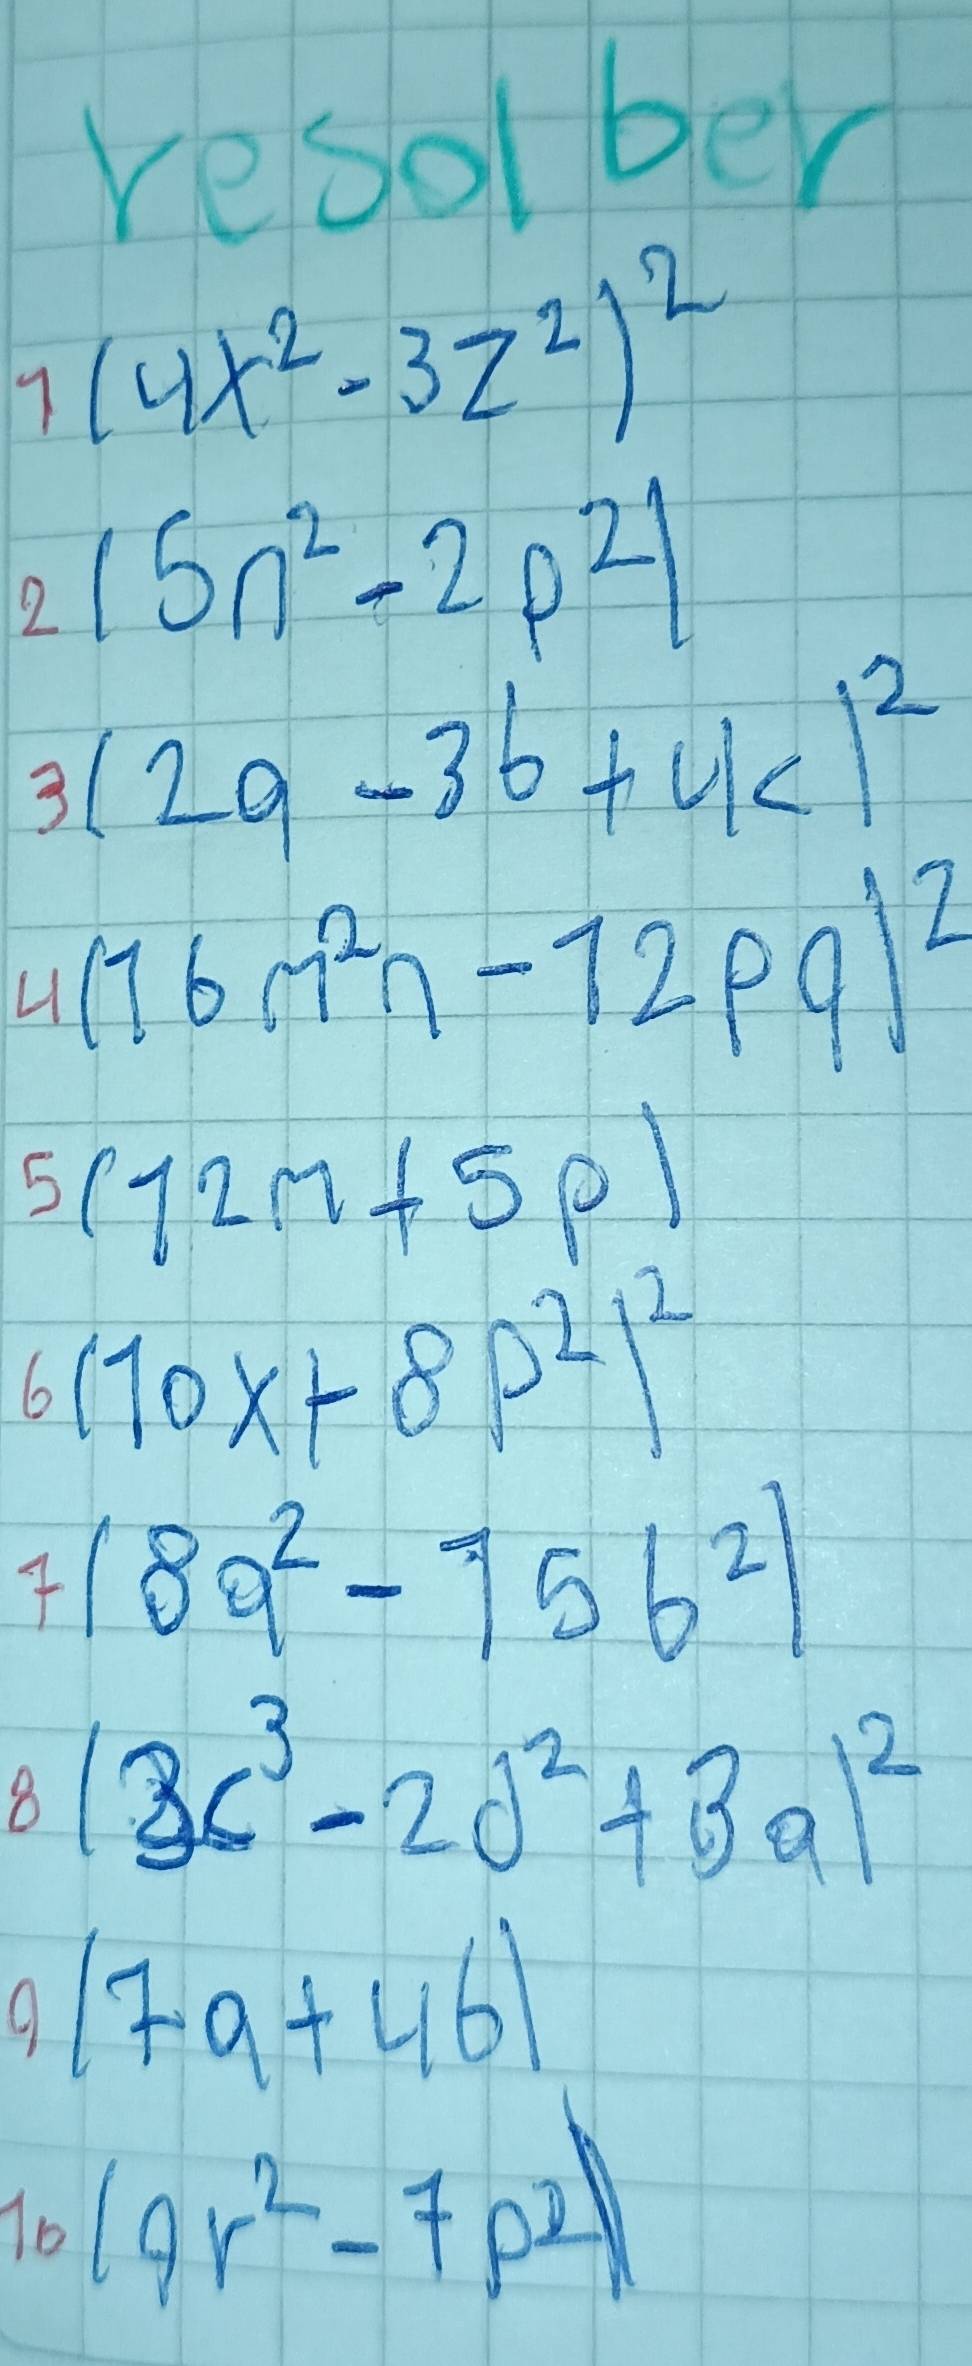 resolber
1 (4x² - 3z²)²
2 (5n² - 2p²)
3 (2a - 3b + 4c)²
4 (16m²n - 12pq)²
5 (12m + 5p)
6 (10x + 8p²)²
7 (8a² - 15b²)
8 (3c³ - 2d² + 3a)²
9 (7a + 4b)
10 (9r² - 7p²)